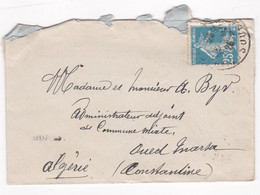 Madame et Monsieur A. Byr
Administrateur adjoint
de Commune mixte
Oued Marsa
Algérie (Constantine)